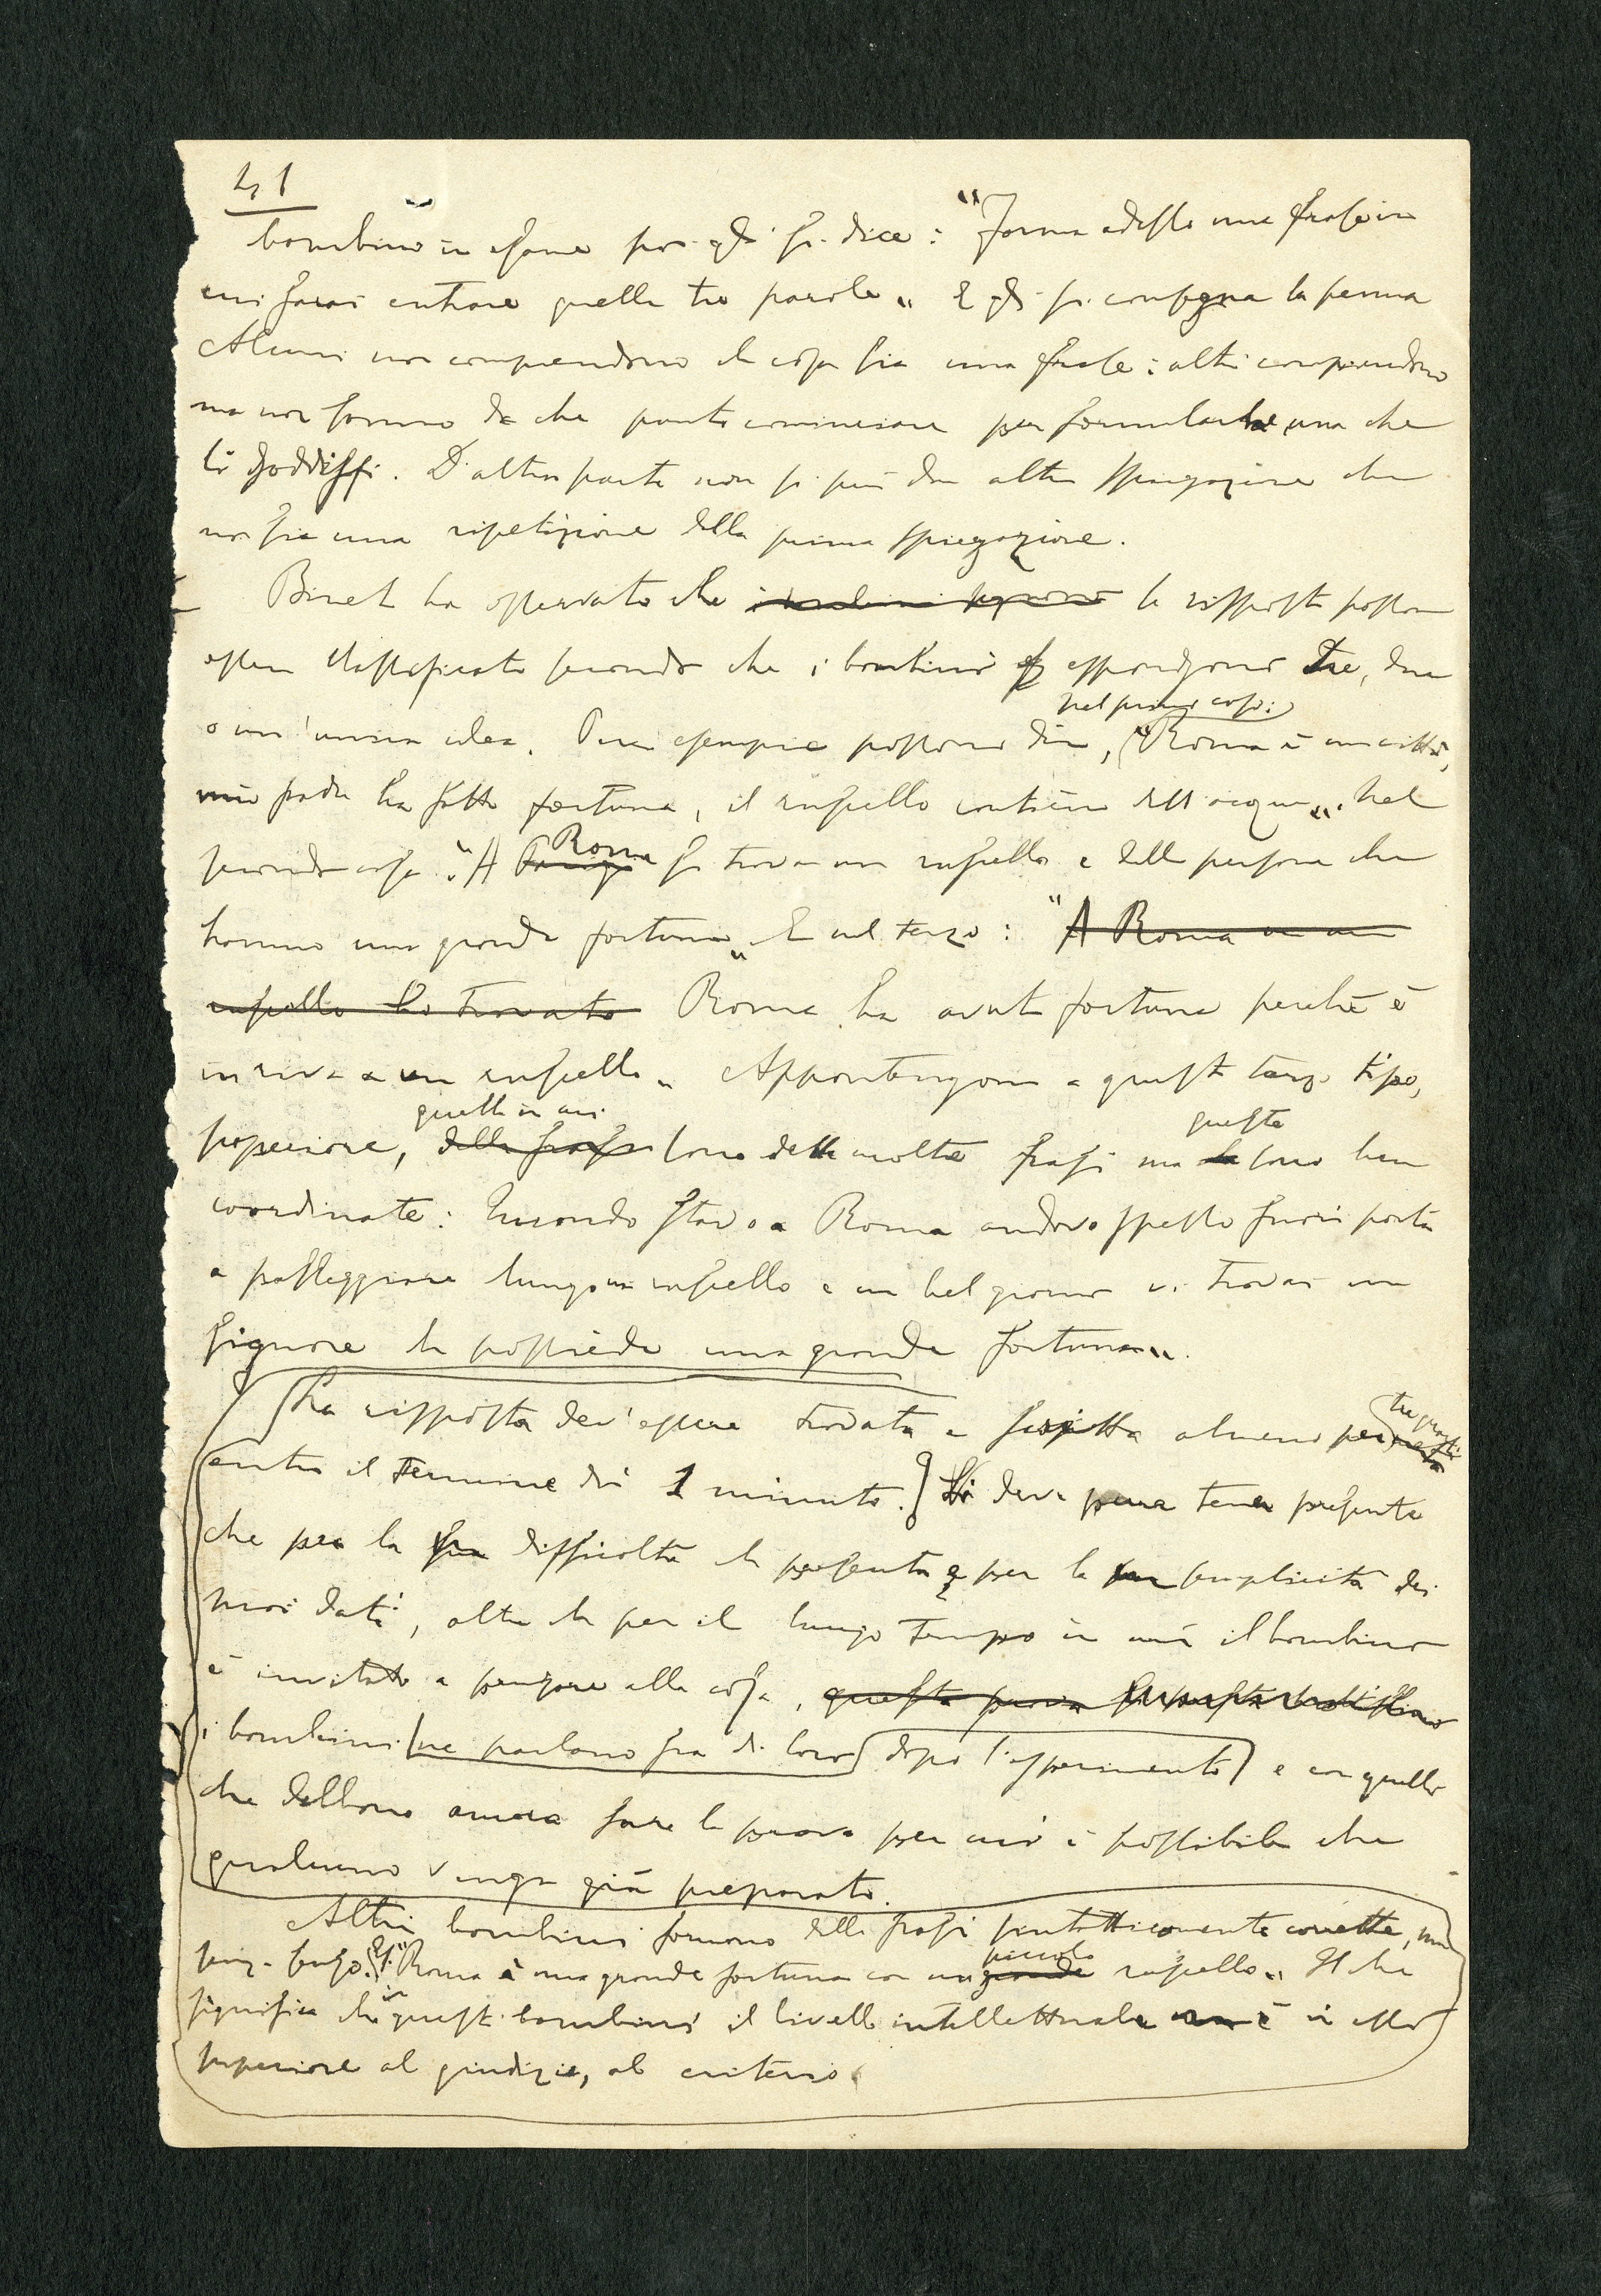 41
bambino in esame poi gli si dice: "Forma adesso una frase in
cui farai entrare quelle tre parole" E gli si consegna la penna
Alcuni non comprendono che cosa sia una frase: altri comprendono
ma non sanno da che parte cominciare per formularne una che
li soddisfi. D'altra parte non si può dare altra spiegazione che
non sia una ripetizione della prima spiegazione.
Binet ha osservato che le risposte possono
essere classificate secondo che i bambini esprimono tre, due
nel primo caso:
o un'unica idea. Per esempio possono dire, "Roma è una città,
mio padre ha fatto fortuna, il ruscello contiene dell'acqua". Nel
Roma
secondo caso: "A Parigi si trova un ruscello e delle persone che
hanno una grande fortuna" E nel terzo: "A Roma in un
ruscello ho trovato Roma ha avuto fortuna perchè è
in riva a un ruscello" Appartengono a questo terzo tipo,
quelle in cui questa
superiore, delle frasi sono delle molte frasi ma sono ben
coordinate: Quando stavo a Roma andavo spesso fuori porta
a passeggiare lungo un ruscello e un bel giorno vi trovai un
signore che possiede una grande fortuna".
tre quarti
La risposta dev'essere trovata e scritta almeno per
entro il termine di 1 minuto. Si deve tener presente
che per la sua difficoltà che presenta e per la semplicità dei
suoi dati, oltre che per il lungo tempo in cui il bambino
è invitato a pensare alla cosa, questa prova
i bambini ne parlano fra di loro dopo l'esperimento e con quelli
che debbono ancora fare la prova per cui è possibile che
qualcuno venga già preparato.
Altri bambini formano delle frasi sintatticamente corrette, ma
piccolo
senza senso. Es: "Roma è una grande fortuna con un grande ruscello". Il che
significa che in questi bambini il livello intellettuale non è in essi
superiore al giudizio, al criterio.